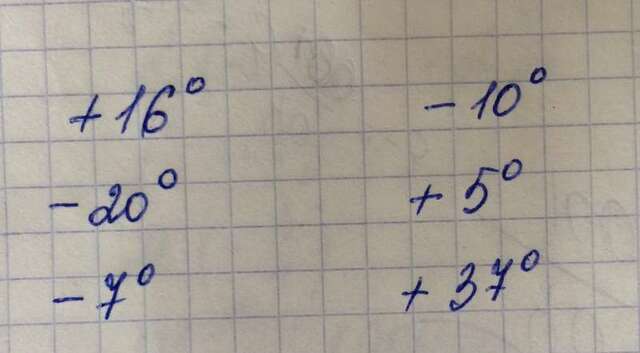 +16° -10°
-20° +5°
-7° +37°